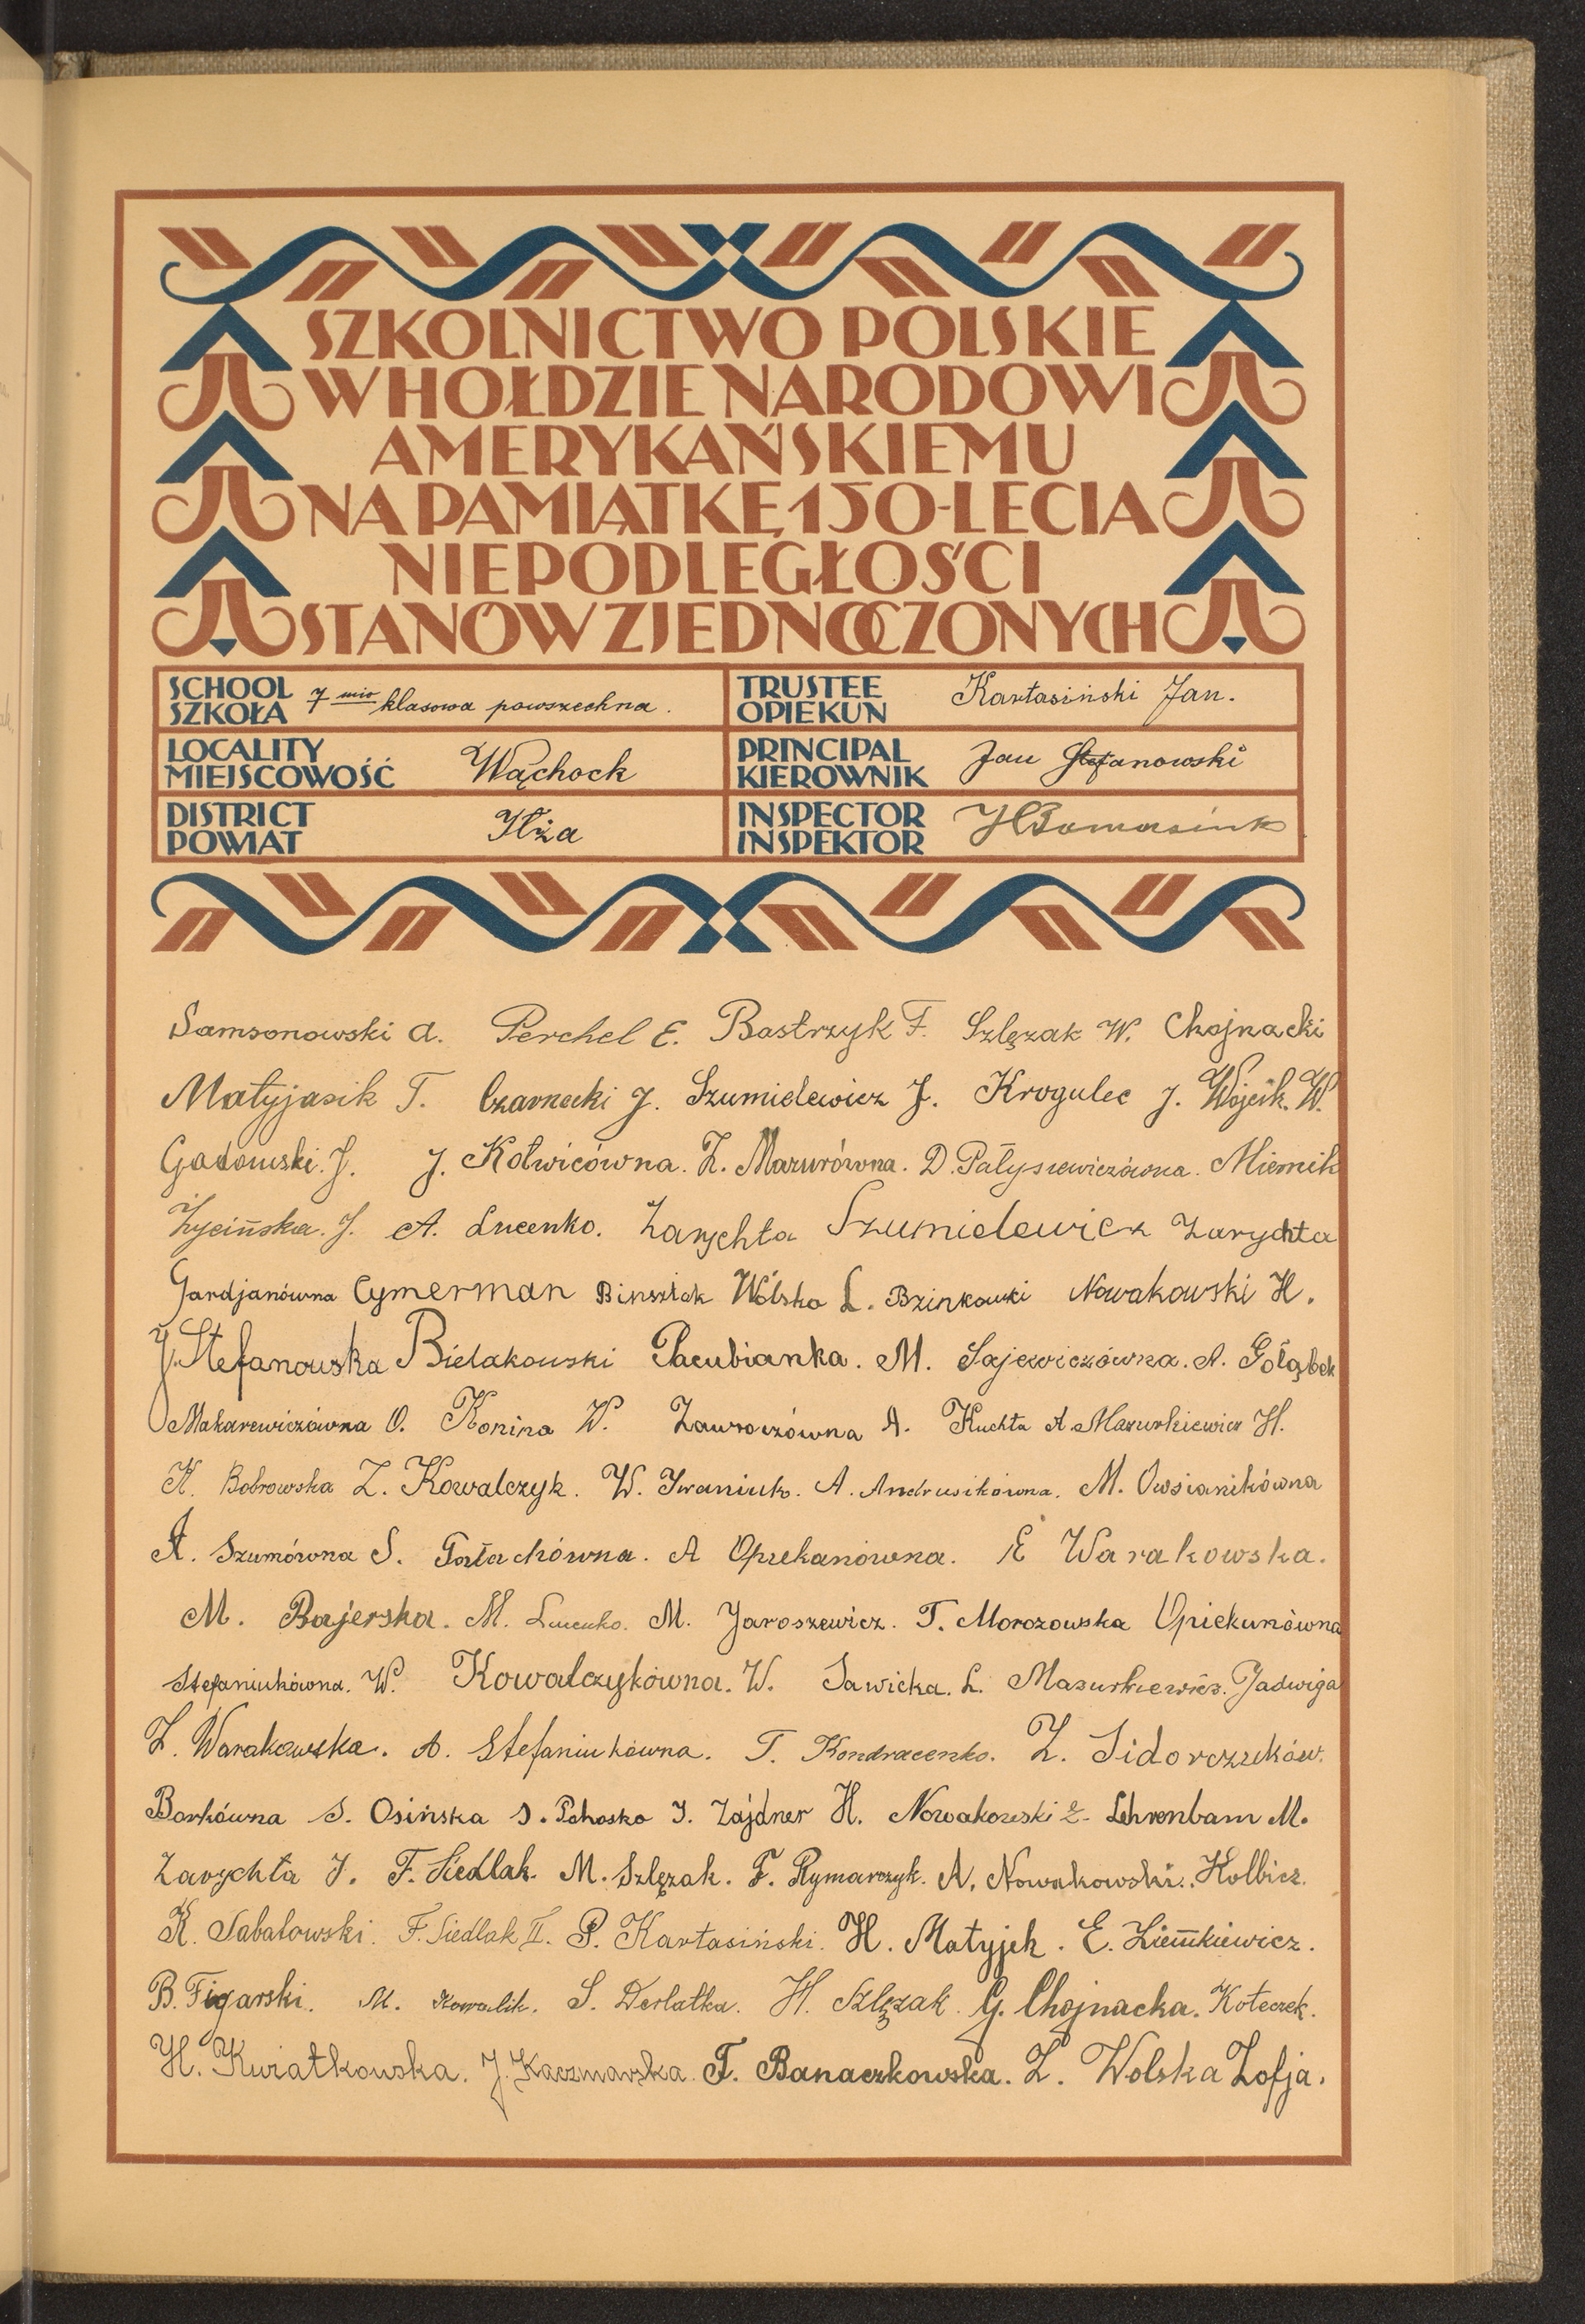 SZKOLNICTWO POLSKIE
W HOŁDZIE NARODOWI
AMERYKAŃSKIEMU
NA PAMIĄTKĘ 150-LECIA
NIEPODLEGŁOŚCI
STANÓW ZJEDNOCZONYCH
SCHOOL SZKOŁA 7 mio klasowa powszechna.
TRUSTEE OPIEKUN Kartasiński Jan.
LOCALITY MIEJSCOWOŚĆ Wąchock
PRINCIPAL KIEROWNIK Jan Stefanowski
DISTRICT POWIAT Iłża
INSPECTOR INSPEKTOR
Samsonowski A. Perchel E. Bastrzyk F. Szlęzak W. Chojnacki
Matyjasik T. Czarnecki J. Szumielewicz J. Krogulec J. Wójcik. W.
Gadomski. J. J. Kotwicówna. Z. Mazurówna. D. Pałysiewiczówna. Miernik
Życińska. J. A. Lucenko. Zarychta Szumielewicz Zarychta
Gardjanówna Cymerman Binsztok Wólska L. Bzinkowski Nowakowski H.
J. Stefanowska Bielakowski Pacubianka. M. Sajewiczówna. A. Gołąbek
Makarewiczówna O. Konina W. Zaworoczówna A. Kuchta A. Mazurkiewicz H.
K. Bobrowska Z. Kowalczyk. W. Iwaniuk. A. Andrusikówna. M. Owsianikówna
A. Szumówna S. A Opiekanówna. E Warakowska.
M. Bajerska. M. Lucenko. M. Jaroszewicz. T. Morozowska Opiekunówna
Stefaniukówna. W. Kowalczykówna. W. Sawicka. L. Mazurkiewicz. Jadwiga
Z. Warakowska. A. Stefaniukówna. T. Kondracenko. Z. Sidorczuków.
Borkówna S. Osińska S. Pchosko J. Zajdner H. Nowakowski Z. Lehrenbam M.
Zarychta J. F. Siedlak. M. Szlęzak. F. Rymarczyk. A. Nowakowski. Kolbicz.
K. Sabatowski. F. Siedlak II. P. Kartasiński. H. Matyjek. E. Ziemkiewicz.
B. Figarski. M. Kowalik. S. Derlatka. H. Szlęzak. G. Chojnacka. Koteczek.
H. Kwiatkowska. J. Kaczmarska. T. Banaczkowska. Z. Wolska Zofja.